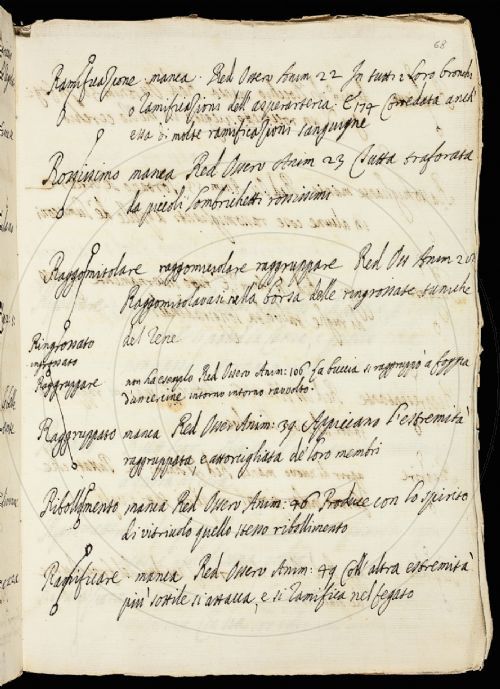 68
Ramificazione manca. Red Osserv Anim 22 In tutti i loro bronchi
o ramificazioni dell'asperarteria. E 174 Corredata anch
essa di molte ramificazioni sanguigne
Rossissimo manca Red Osserv Anim 23 Tutta traforata
da piccoli lombrichetti rossissimi
Raggomitolare raggomicolare raggruppare Red Oss Anim
Raggomitolavasi nella borsa delle ringrossate tuniche
Ringrossato del Pene
ingrossato
Raggruppare non ha esemplo Red Osserv Anim: 106 La buccia si raggruppò a foggia
intorno intorno ravvolto.
Raggruppato manca Red Osserv Anim: 39 Appiccano l'estremità
raggruppata e attorcigliata de loro membri
Ribollimento manca Red Osserv Anim: 46 Produce con lo spirito
di vitriuolo quello stesso ribollimento
Ramificare manca Red Osserv Anim: 49 Coll'altra estremità
più sottile si attacca, e si ramifica nel fegato